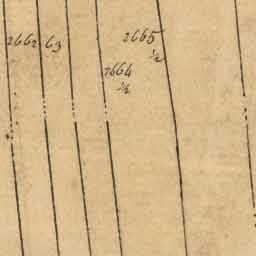 2662 63
2665
½
2664
½